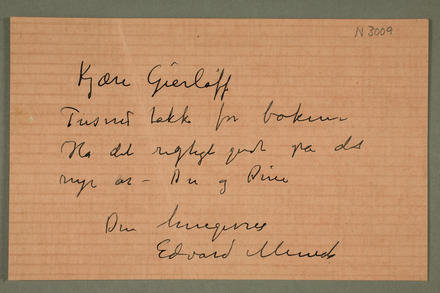 N 3009
Kjære Gierløff
Tusind takk for boken
Ha det rigtigt godt på det
nye år – Du og Dine
Din hengivne
Edvard Munch